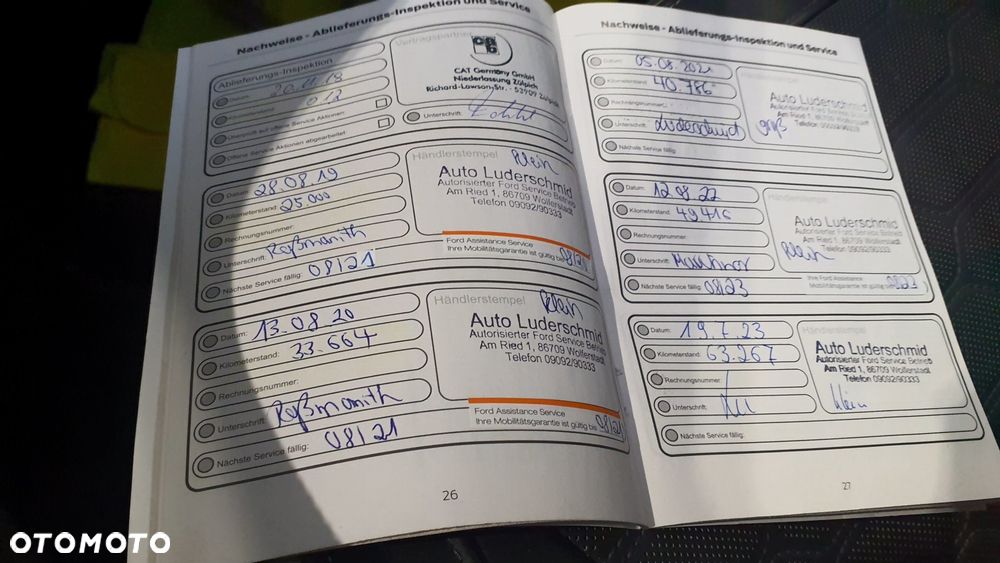 Nachweise - Ablieferungs-Inspektion und Service
Ablieferungs-Inspektion
20.11.18
012
Überprüft auf offene Service Aktionen:
Offene Service Aktionen abgearbeitet:
Vertragspartner
CAT Germany GmbH
Niederlassung Zülpich
Richard-Lawson-Str. · 53909 Zülpich
Unterschrift:
Datum: 28.08.19
Kilometerstand: 25000
Rechnungsnummer:
Unterschrift: Roßmanith
Nächste Service fällig: 08/21
Händlerstempel
Klein
Auto Luderschmid
Autorisierter Ford Service Betrieb
Am Ried 1, 86709 Wolferstadt
Telefon 09092/90333
Ford Assistance Service
Ihre Mobilitätsgarantie ist gültig bis 08/21
Datum: 13.08.20
Kilometerstand: 33.664
Rechnungsnummer:
Unterschrift: Roßmanith
Nächste Service fällig: 08/21
Händlerstempel
Klein
Auto Luderschmid
Autorisierter Ford Service Betrieb
Am Ried 1, 86709 Wolferstadt
Telefon 09092/90333
Ford Assistance Service
Ihre Mobilitätsgarantie ist gültig bis 08/21
26
Nachweise - Ablieferungs-Inspektion und Service
Datum: 05.08.2021
Kilometerstand: 40.786
Rechnungsnummer:
Unterschrift: Luderschmid
Nächste Service fällig:
Händlerstempel
Auto Luderschmid
Autorisierter Ford Service Betrieb
Am Ried 1, 86709 Wolferstadt
Telefon 09092/90333
groß
Datum: 12.08.22
Kilometerstand: 49416
Rechnungsnummer:
Unterschrift:
Nächste Service fällig: 08/23
Händlerstempel
Auto Luderschmid
Autorisierter Ford Service Betrieb
Am Ried 1, 86709 Wolferstadt
Telefon 09092/90333
Klein
Ihre Ford Assistance
Mobilitätsgarantie ist gültig bis 08/23
Datum: 19.7.23
Kilometerstand: 63.267
Rechnungsnummer:
Unterschrift:
Nächste Service fällig:
Händlerstempel
Auto Luderschmid
Autorisierter Ford Service Betrieb
Am Ried 1, 86709 Wolferstadt
Telefon 09092/90333
klein
27
OTOMOTO